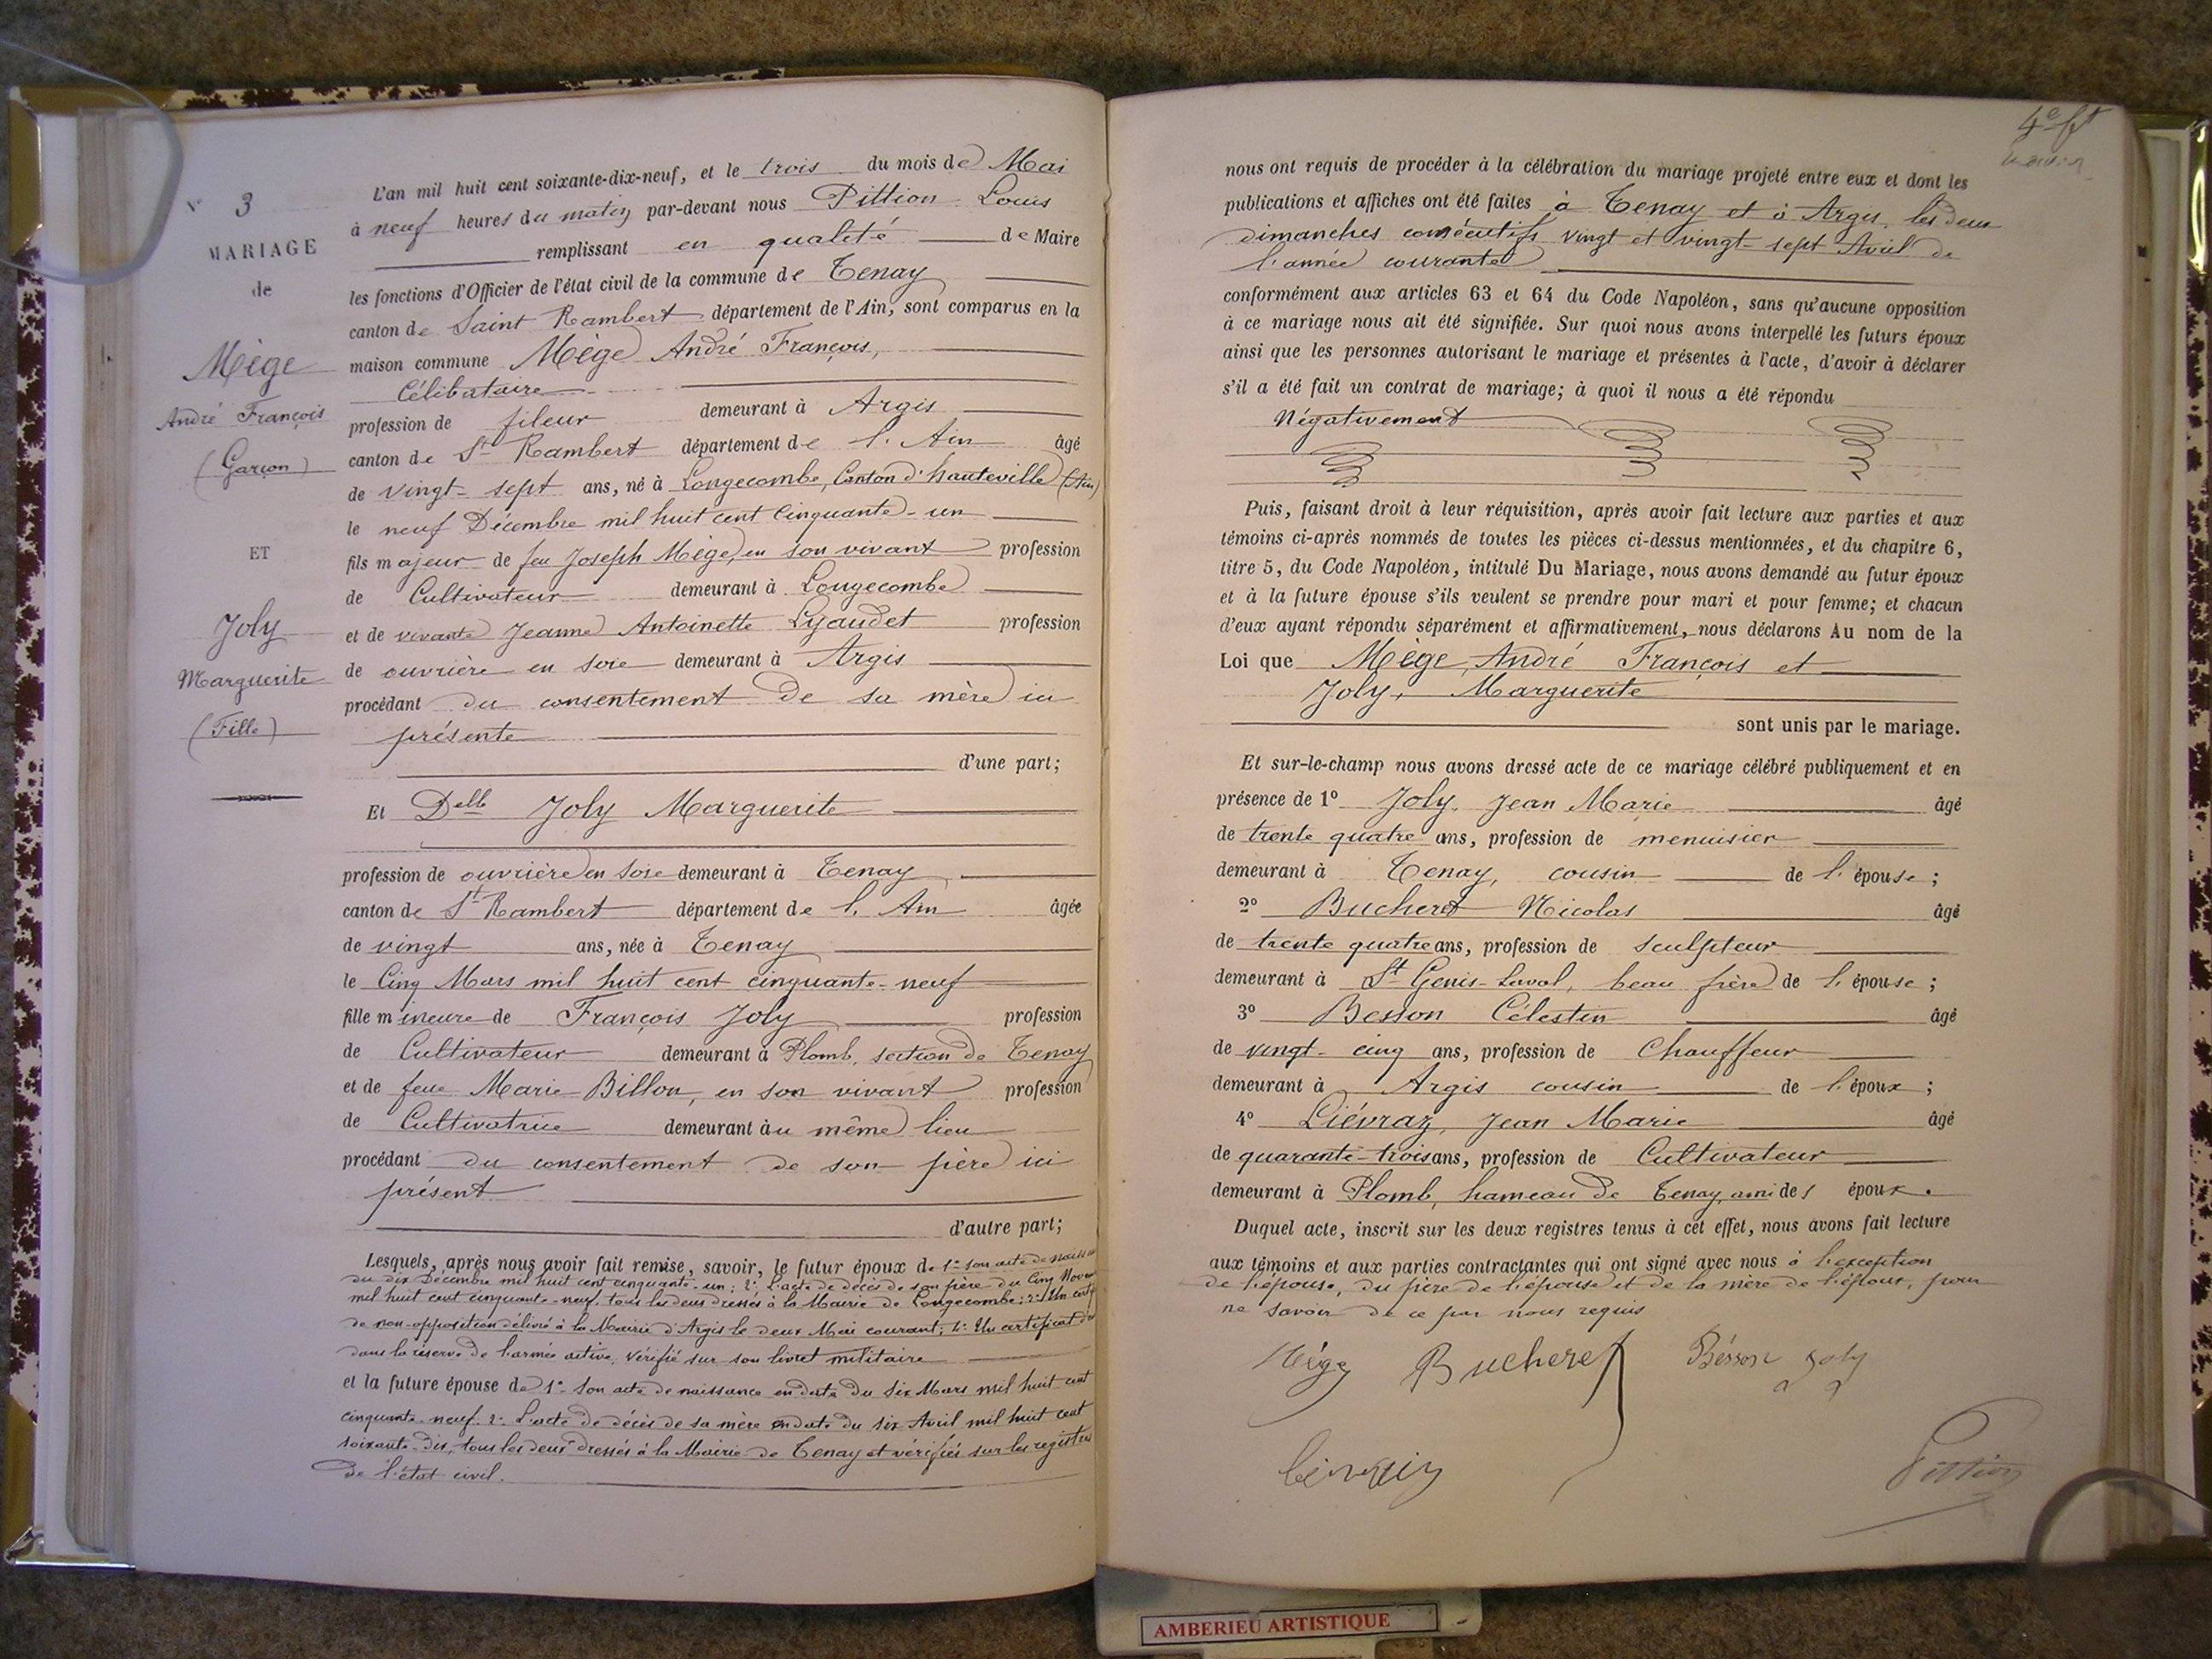 N° 3
MARIAGE
de
Mège
André François
(Garçon)
ET
Joly
Marguerite
(Fille)
L'an mil huit cent soixante-dix-neuf, et le trois du mois de Mai
à neuf heures du matin par-devant nous Pittion Louis
remplissant en qualité de Maire
les fonctions d'Officier de l'état civil de la commune de Tenay
canton de Saint Rambert département de l'Ain, sont comparus en la
maison commune Mège André François,
Célibataire
profession de fileur demeurant à Argis
canton de St Rambert département de l'Ain âgé
de vingt-sept ans, né à Longecombe, Canton d'hauteville (Ain)
le neuf Décembre mil huit cent Cinquante-un
fils majeur de feu Joseph Mège, en son vivant profession
de Cultivateur demeurant à Longecombe
et de vivante Jeanne Antoinette Lyaudet profession
de ouvrière en soie demeurant à Argis
procédant du consentement de sa mère ici
présente
d'une part;
Et Delle Joly Marguerite
profession de ouvrière en soie demeurant à Tenay
canton de St Rambert département de l'Ain âgée
de vingt ans, née à Tenay
le Cinq Mars mil huit cent cinquante-neuf
fille mineure de François Joly profession
de Cultivateur demeurant à Plomb, section de Tenay
et de feue Marie Billon, en son vivant profession
de Cultivatrice demeurant au même lieu
procédant du consentement de son père ici
présent
d'autre part;
Lesquels, après nous avoir fait remise, savoir, le futur époux de 1° son acte de
du dix Décembre mil huit cent cinquante-un; 2° L'acte de décès de son père du Cinq
mil huit cent cinquante-neuf, tous les deux dressés à la Mairie de Longecombe; Un
de non-opposition délivré à la Mairie d'Argis le deux Mai courant; Un certificat
dans la réserve de l'armée active, vérifié sur son livret militaire
et la future épouse de 1° Son acte de naissance en date du six Mars mil huit cent
cinquante-neuf. 2° L'acte de décès de sa mère en date du six Avril mil huit cent
soixante-dix, tous les deux dressés à la Mairie de Tenay et vérifiés sur les registres
de l'état civil.
4e
nous ont requis de procéder à la célébration du mariage projeté entre eux et dont les
publications et affiches ont été faites à Tenay et à Argis, les deux
dimanches consécutifs vingt et vingt-sept Avril de
l'année courante
conformément aux articles 63 et 64 du Code Napoléon, sans qu'aucune opposition
à ce mariage nous ait été signifiée. Sur quoi nous avons interpellé les futurs époux
ainsi que les personnes autorisant le mariage et présentes à l'acte, d'avoir à déclarer
s'il a été fait un contrat de mariage; à quoi il nous a été répondu
Négativement
Puis, faisant droit à leur réquisition, après avoir fait lecture aux parties et aux
témoins ci-après nommés de toutes les pièces ci-dessus mentionnées, et du chapitre 6,
titre 5, du Code Napoléon, intitulé Du Mariage, nous avons demandé au futur époux
et à la future épouse s'ils veulent se prendre pour mari et pour femme; et chacun
d'eux ayant répondu séparément et affirmativement, nous déclarons Au nom de la
Loi que Mège, André François et
Joly, Marguerite
sont unis par le mariage.
Et sur-le-champ nous avons dressé acte de ce mariage célébré publiquement et en
présence de 1° Joly, Jean Marie âgé
de trente quatre ans, profession de menuisier
demeurant à Tenay, cousin de l'épouse;
2° Bucheret Nicolas âgé
de trente quatre ans, profession de sculpteur
demeurant à St Genis-Laval, beau frère de l'épouse;
3° Besson Célestin âgé
de vingt-cinq ans, profession de Chauffeur
demeurant à Argis cousin de l'époux;
4° Liévraz, Jean Marie âgé
de quarante-trois ans, profession de Cultivateur
demeurant à Plomb, hameau de Tenay, ami des époux.
Duquel acte, inscrit sur les deux registres tenus à cet effet, nous avons fait lecture
aux témoins et aux parties contractantes qui ont signé avec nous à l'exception
de l'épouse, du père de l'épouse et de la mère de l'époux, pour
ne savoir de ce par nous requis
Mège Bucheret Bésson Joly
Pittion
AMBERIEU ARTISTIQUE